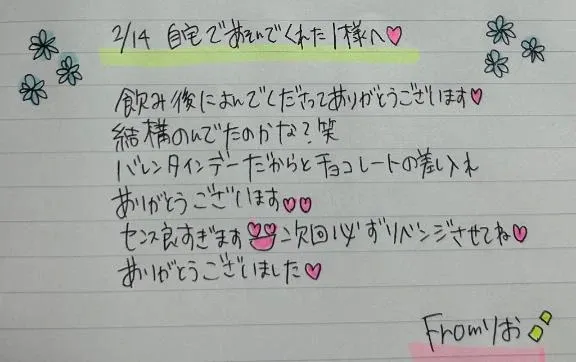 2/14 自宅であそんでくれたI様へ♡
飲み後によんでくださってありがとうございます♡
結構のんでたのかな?笑
バレンタインデーだからとチョコレートの差し入れ
ありがとうございます♡♡
センス良すぎます😍次回必ずリベンジさせてね♡
ありがとうございました♡
Fromりお